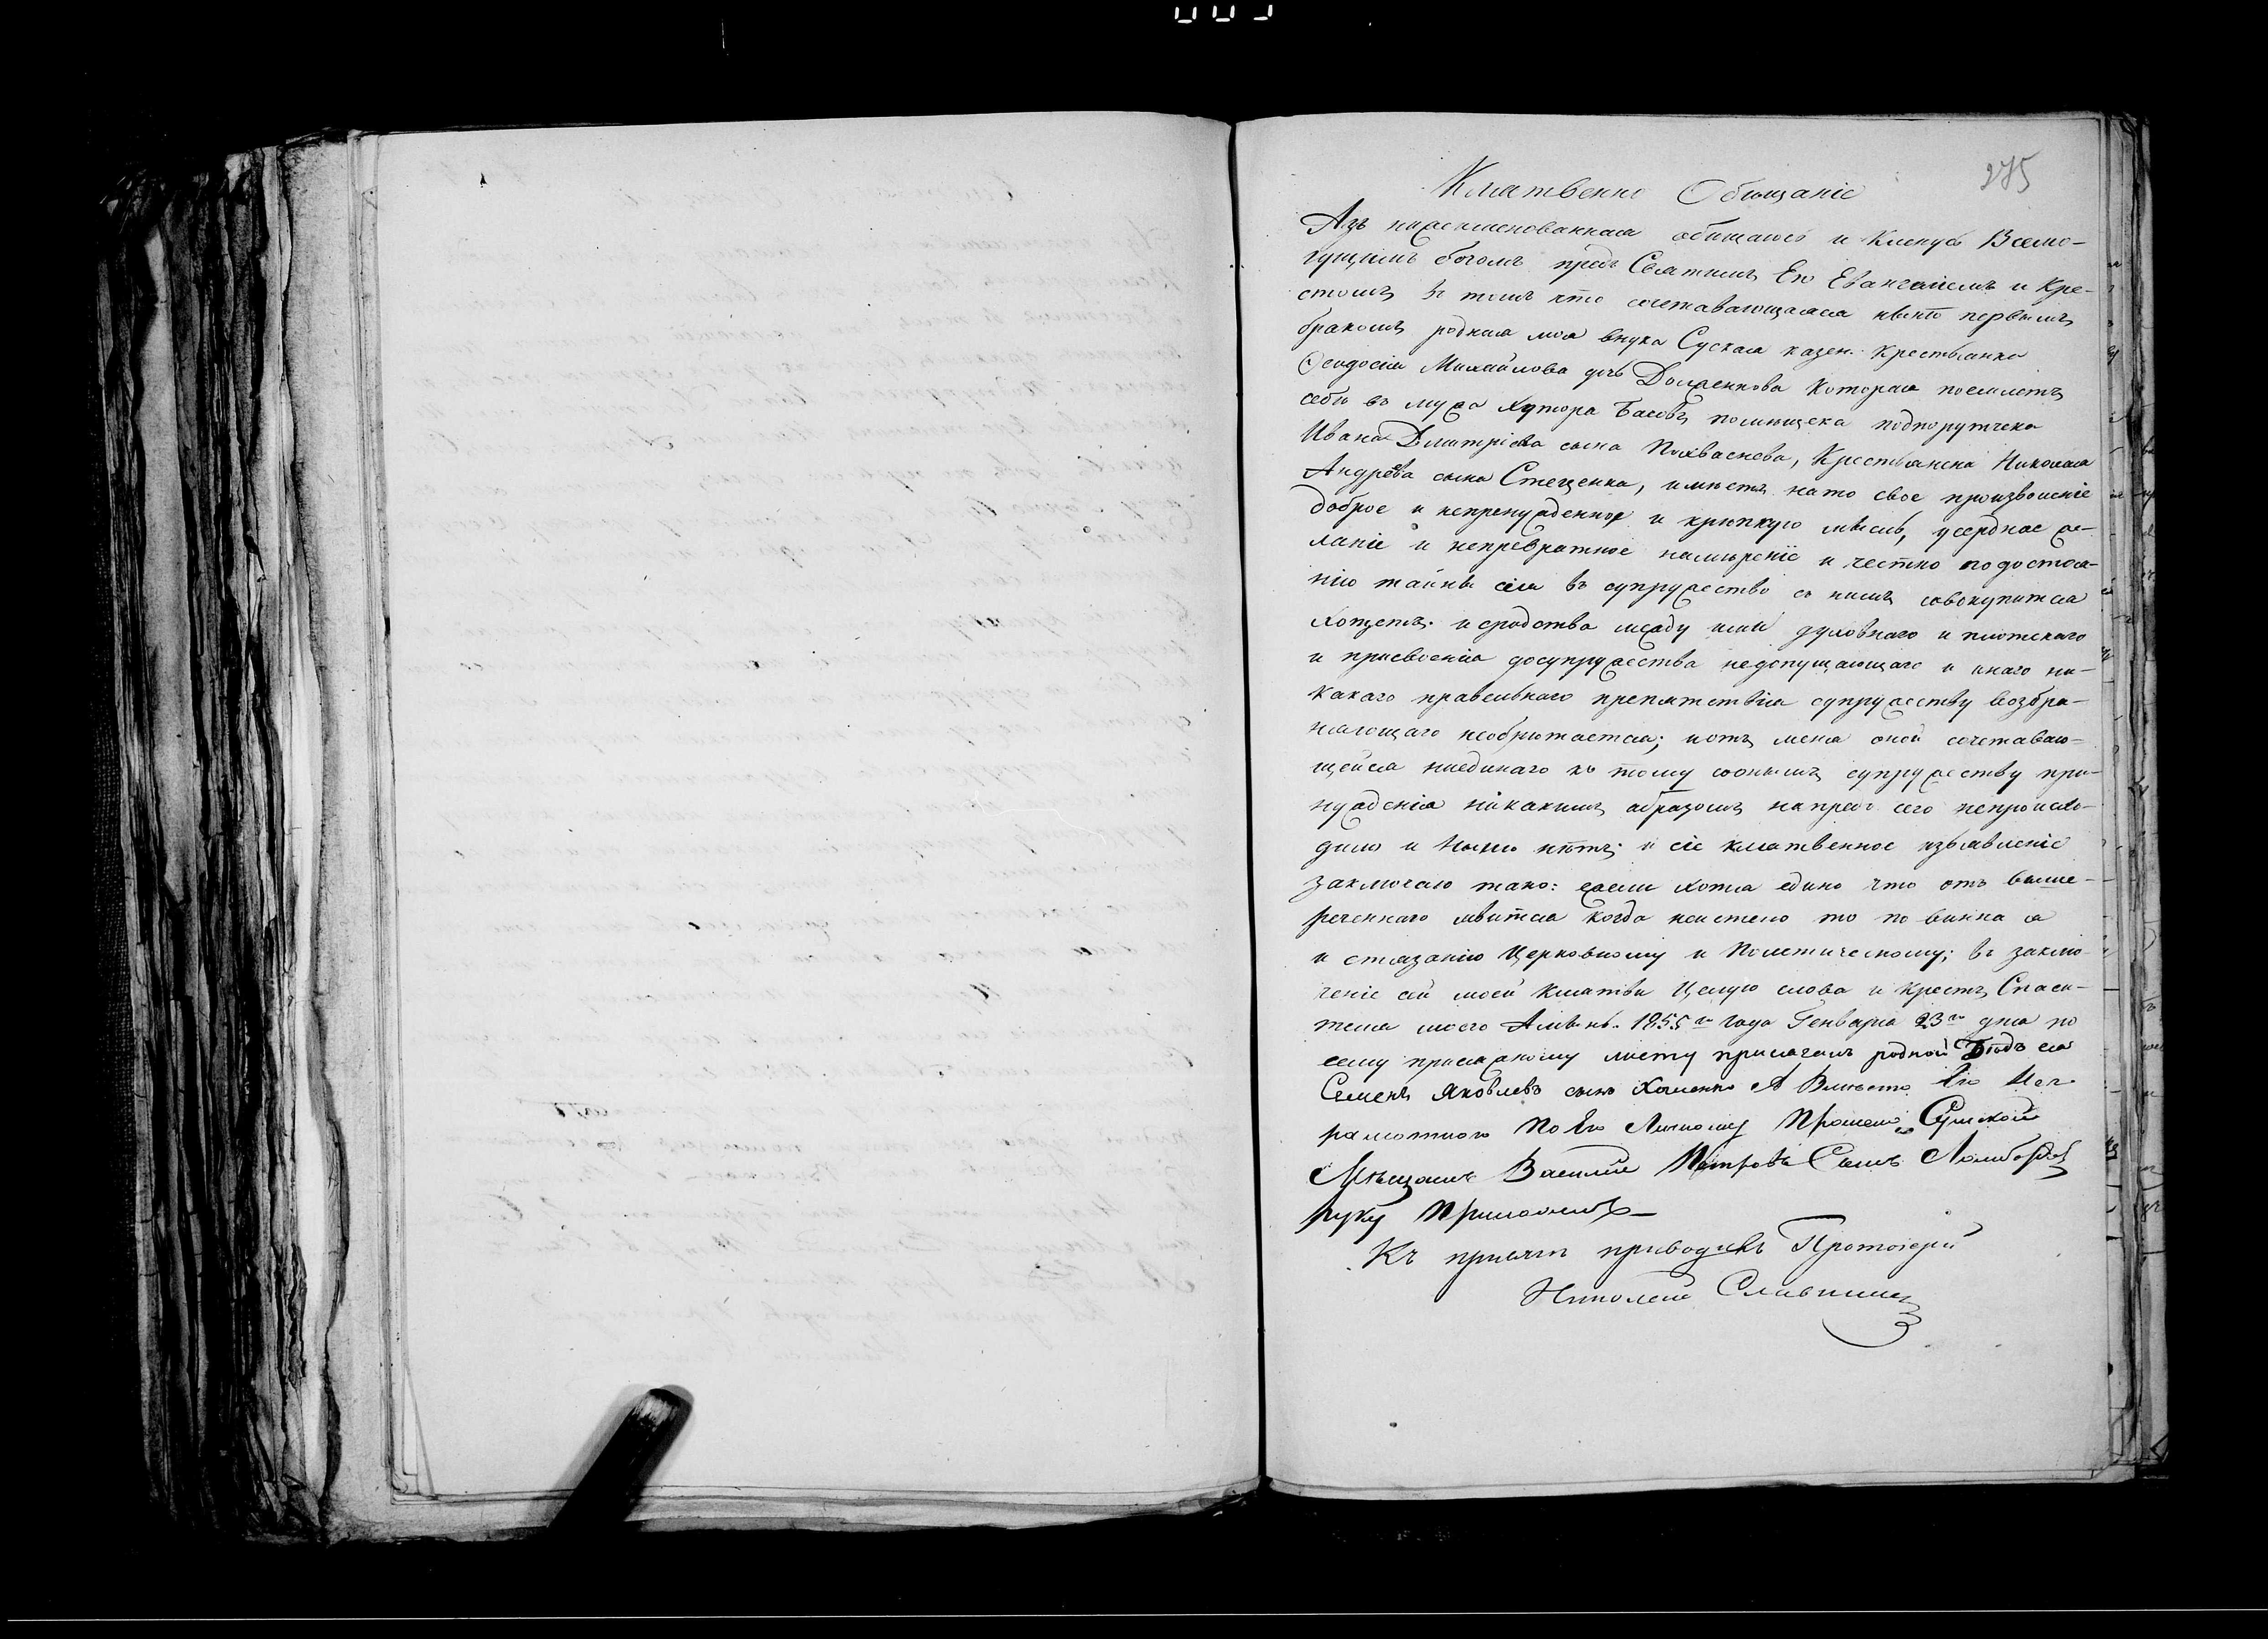 275
Клятвенно Обѣщаніе
Азъ нижеименованная обѣщаюсь и Кленусь Всемо-
гущимъ богомъ предъ Святимъ Его Евангеліемъ и Кре-
стомъ въ томъ что сочетавающаяся нынѣ первымъ
бракомъ родная моя внука Сумская казен. крестьянка
Ѳеодосія Михайлова дочь Долженкова которая поемлетъ
себѣ въ мужа хутора Басовъ помѣщика подпорутчика
Ивана Дмитріева сына Похваснева, Крестьянина Николая
Андрѣева сына Стеценка, имѣетъ на то свое произволеніе
доброе и непренужденное и крѣпкую мысль, усердное же-
ланіе и непревратное намѣреніе и честно по достоя-
нію тайны сея въ супружество съ нимъ совокупится
хощетъ. и сродства между ими духовнаго и плотскаго
и присвоенія досупружества недопущающаго и инаго ни-
какаго правельнаго препятствія супружеству возбра-
няющаго необрѣтается; и отъ мена оной сочетаваю-
щейся ниединаго къ тому соонымъ супружеству при-
нужденія никакимъ образомъ напредъ сего непроисхо-
дило и Ныне нѣтъ; и сіе клятвенное изъявленіе
заключаю тако: ежели хотя едино что отъ выше-
реченнаго явится когда неистено то по винна я
и стязанію Церковному и Политическому; въ заклю-
ченіе сей моей клятви Целую слова и крестъ Спаси-
теля моего Аминь. 1855го года Генваря 23го дня по
сему присяжному листу присягалъ родной Дѣдъ ея
Семенъ Яковлевъ сынъ Хоменко А Вмѣсто Его Нег-
рамотного По Его Личному Прошению Сумской
Мѣщанинъ Василий Петровъ Сынъ
руку Приложилъ
Къ присягѣ приводилъ Протоіерей
Николай